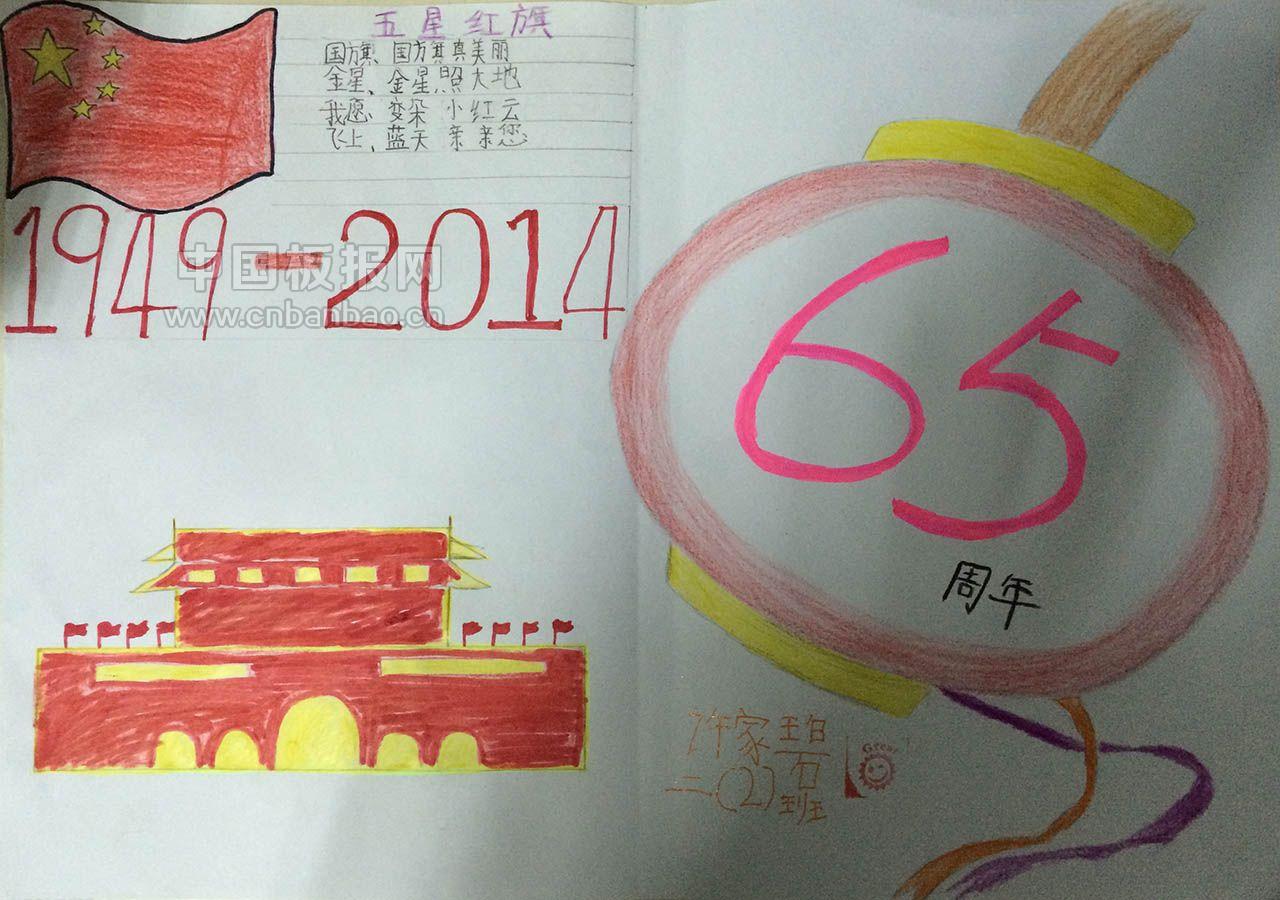 五星红旗
国旗、国旗真美丽
金星、金星照大地
我愿变朵小红云
飞上、蓝天亲亲您
1949-2014
中国板报网
www.cnbanbao.cn
65
周年
许家碧
二(2)班
Great